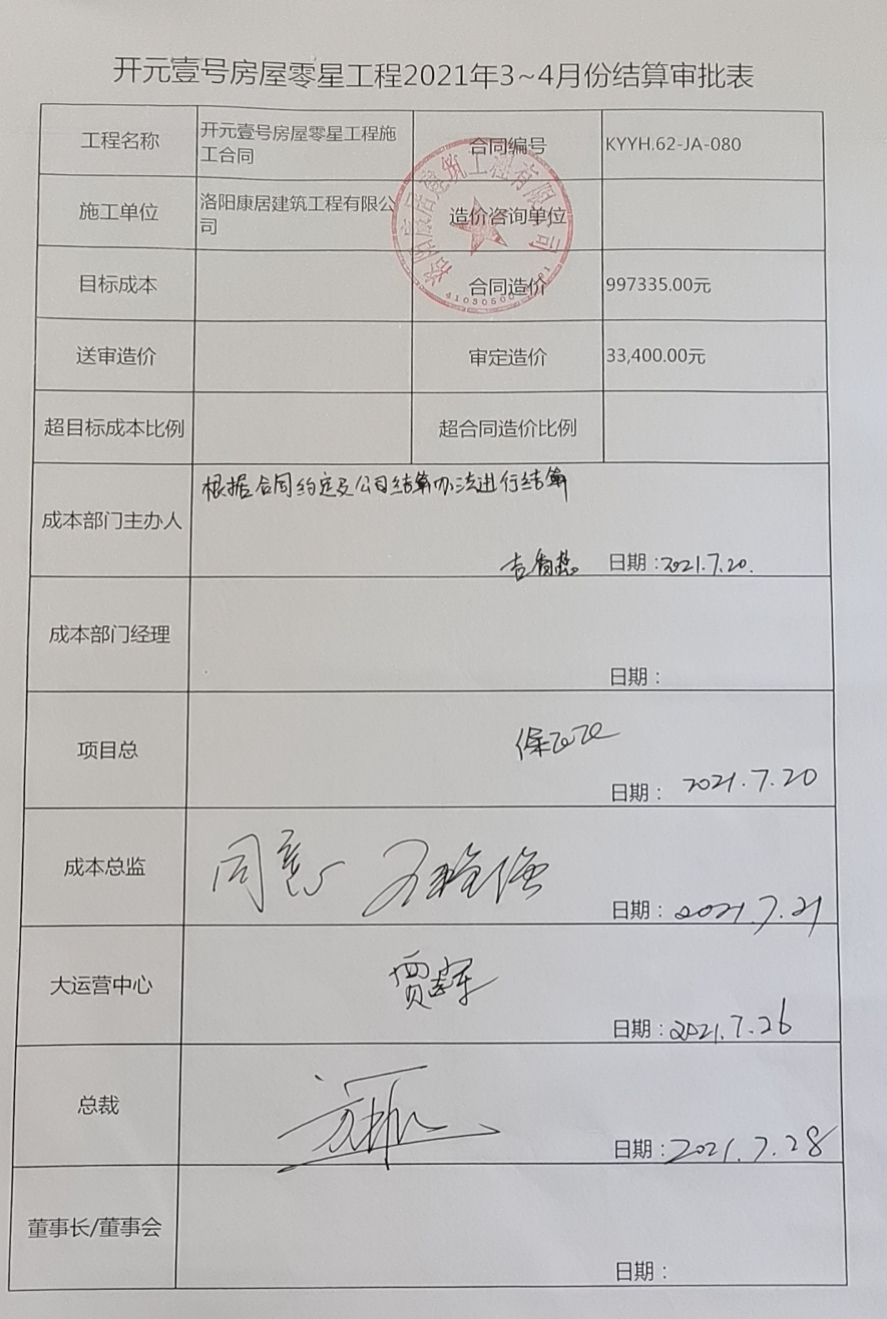 开元壹号房屋零星工程2021年3~4月份结算审批表
工程名称
开元壹号房屋零星工程施
工合同
合同编号
KYYH.62-JA-080
施工单位
洛阳康居建筑工程有限公
司
造价咨询单位
洛阳康居建筑工程有限公司
目标成本
合同造价
997335.00元
送审造价
审定造价
33,400.00元
超目标成本比例
超合同造价比例
成本部门主办人
根据合同约定及公司结算办法进行结算
日期：2021.7.20.
成本部门经理
日期：
项目总
日期： 2021.7.20
成本总监
同意
日期：2021.7.21
大运营中心
日期：2021.7.26
总裁
日期：2021.7.28
董事长/董事会
日期：